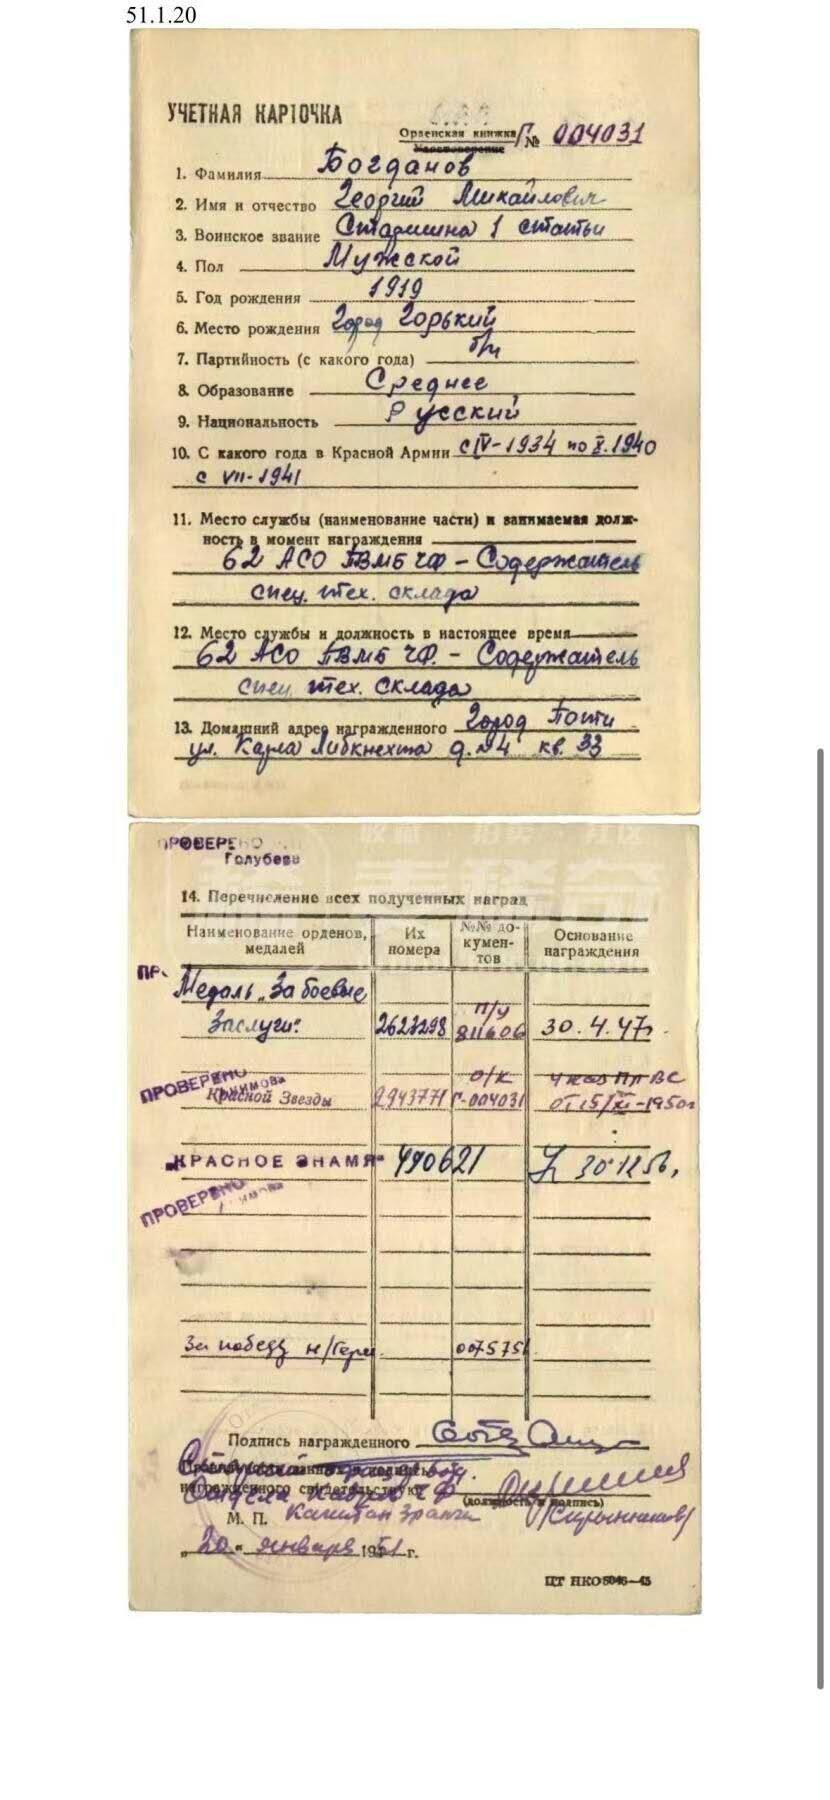 51.1.20
УЧЕТНАЯ КАРТОЧКА
Орденская книжка Г№ 004031
Удостоверение
1. Фамилия Богданов
2. Имя и отчество Георгий Михайлович
3. Воинское звание Старшина 1 статьи
4. Пол Мужской
5. Год рождения 1919
6. Место рождения Город Горький
7. Партийность (с какого года) б/п
8. Образование Среднее
9. Национальность Русский
10. С какого года в Красной Армии с IV-1934 по X.1940
с VII-1941
11. Место службы (наименование части) и занимаемая долж-
ность в момент награждения
62 АСО ПВМБ ЧФ – Содержатель
спец. тех. склада
12. Место службы и должность в настоящее время
62 АСО ПВМБ ЧФ. – Содержатель
спец. тех. склада
13. Домашний адрес награжденного Город Поти
ул. Карла Либкнехта д. №4 кв. 33
ПРОВЕРЕНО
Голубева
14. Перечисление всех полученных наград
Наименование орденов, медалей
Их номера
№№ до-
кумен-
тов
Основание награждения
Медаль „За боевые
Заслуги“ 2623298 п/у 811606 30.4.47г.
ПРОВЕРЕНО
Красной Звезды 2943771 о/к Г-004031 Указ ПВС
от 15/XI-1950г
„КРАСНОЕ ЗНАМЯ“ 490621 У 30.12.56,
ПРОВЕРЕНО
За победу н/Герм. 0075751
Подпись награжденного
награжденного свидетельствую
Отдела кадров ЧФ
(должность и подпись)
М. П. Капитан 3 ранга
„20“ января 1951 г.
ЦТ НКО 5046—45